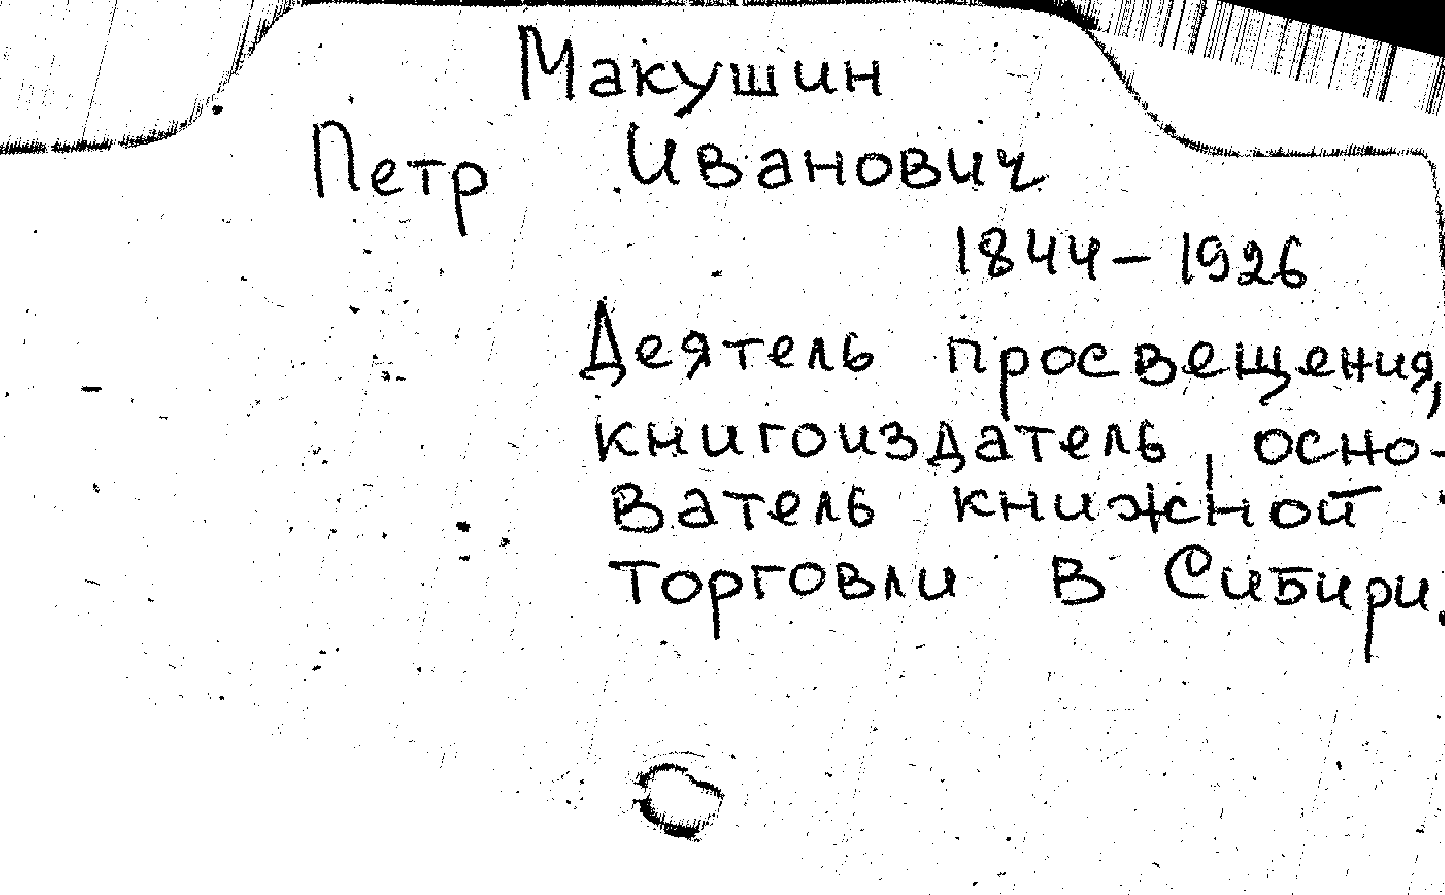 Макушин
Петр Иванович
1844-1926
Деятель просвещения,
книгоиздатель, осно-
ватель книжной
торговли в Сибири.